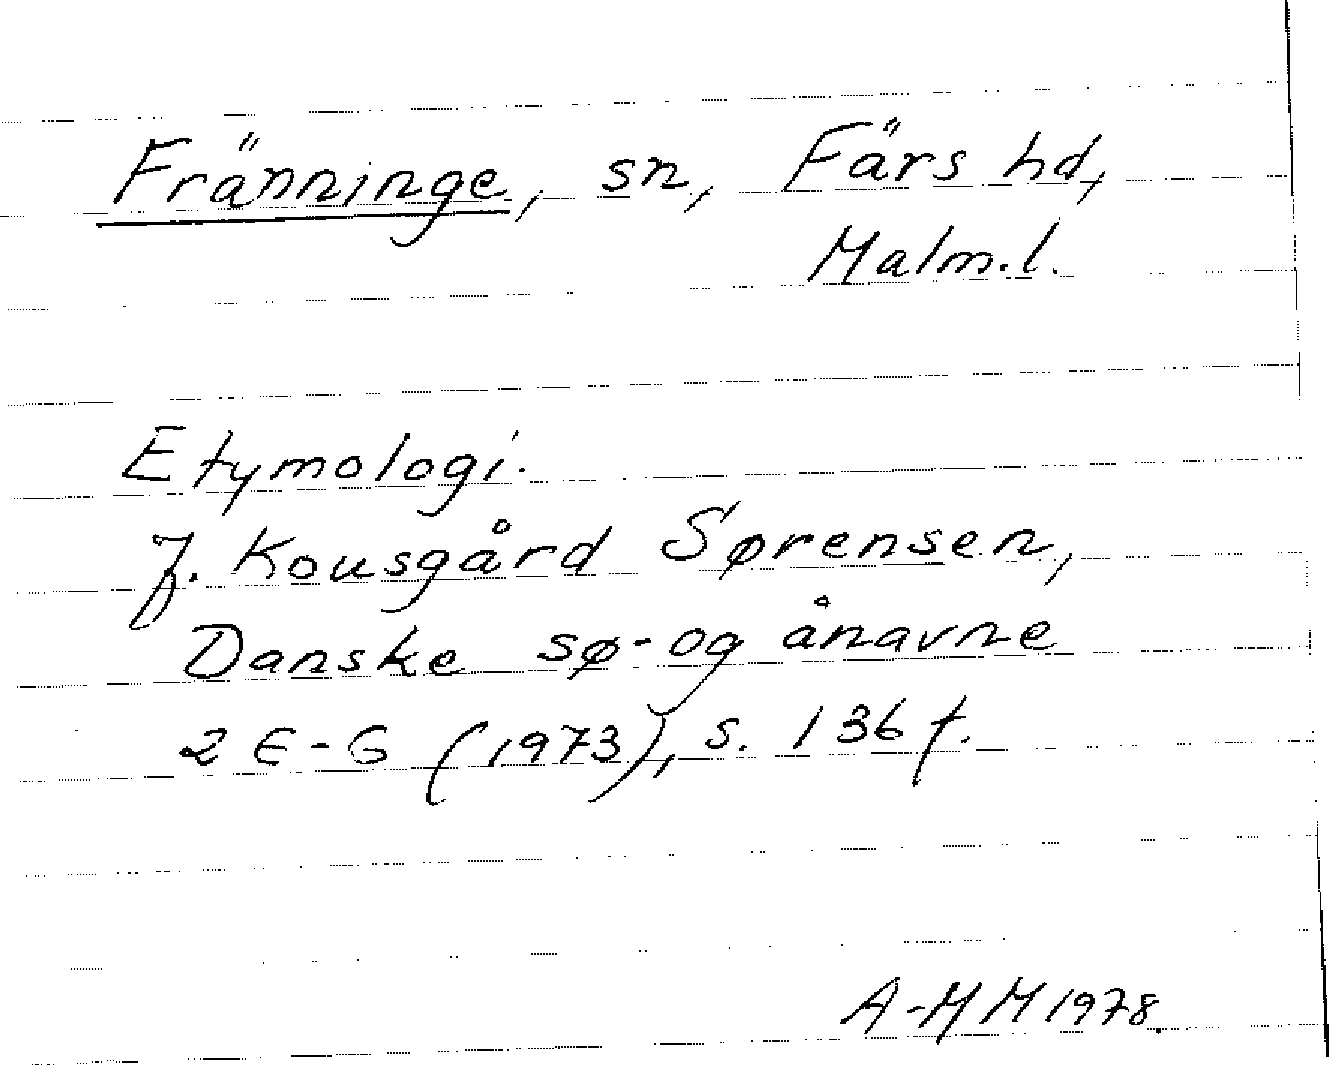 Fränninge, sn, Färs hd,
Malm.l.
Etymologi.
J. Kousgård Sørensen,
Danske sø- og ånavne
2 E-G (1973), s. 136 f.
A-MM 1978.